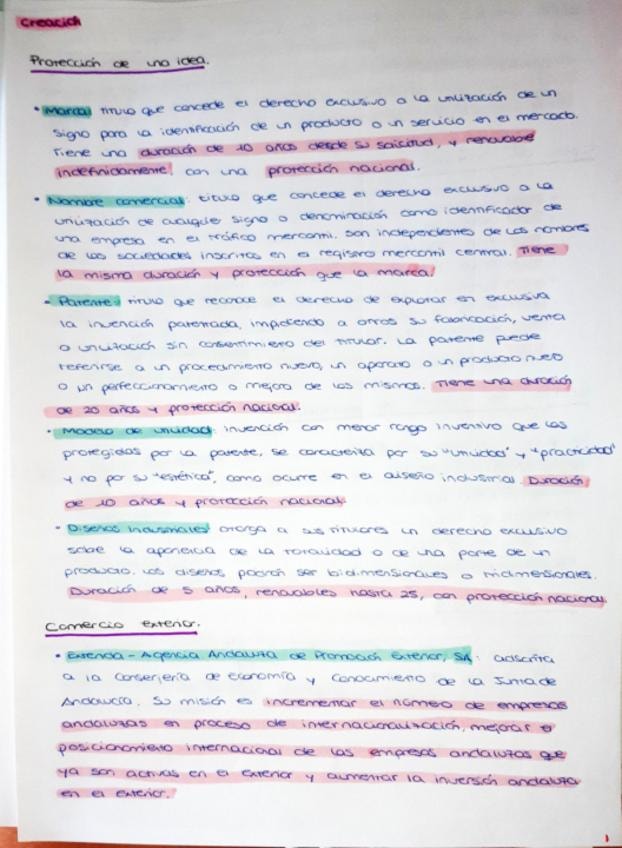 Creación
Protección de una idea.
• Marca: título que concede el derecho exclusivo a la utilización de un
signo para la identificación de un producto o un servicio en el mercado.
Tiene una duración de 10 años desde su solicitud, y renovable
indefinidamente, con una protección nacional.
• Nombre comercial: título que concede el derecho exclusivo a la
utilización de cualquier signo o denominación como identificador de
una empresa en el tráfico mercantil. Son independientes de los nombres
de las sociedades inscritas en el registro mercantil central. Tiene
la misma duración y protección que la marca.
• Patente: título que reconoce el derecho de explotar en exclusiva
la invención patentada, impidiendo a otros su fabricación, venta
o utilización sin consentimiento del titular. La patente puede
referirse a un procedimiento nuevo, un aparato o un producto nuevo
o un perfeccionamiento o mejora de los mismos. Tiene una duración
de 20 años y protección nacional.
• Modelo de utilidad: invención con menor rango inventivo que las
protegidas por la patente, se caracteriza por su "utilidad" y "practicidad"
y no por su "estética", como ocurre en el diseño industrial. Duración
de 10 años y protección nacional.
• Diseños Industriales: otorga a sus titulares un derecho exclusivo
sobre la apariencia de la totalidad o de una parte de un
producto. Los diseños podrán ser bidimensionales o tridimensionales.
Duración de 5 años, renovables hasta 25, con protección nacional.
Comercio Exterior.
• Extenda - Agencia Andaluza de Promoción Exterior, SA: adscrita
a la Consejería de Economía y Conocimiento de la Junta de
Andalucía. Su misión es incrementar el número de empresas
andaluzas en proceso de internacionalización, mejorar el
posicionamiento internacional de las empresas andaluzas que
ya son activas en el exterior y aumentar la inversión andaluza
en el exterior.
1